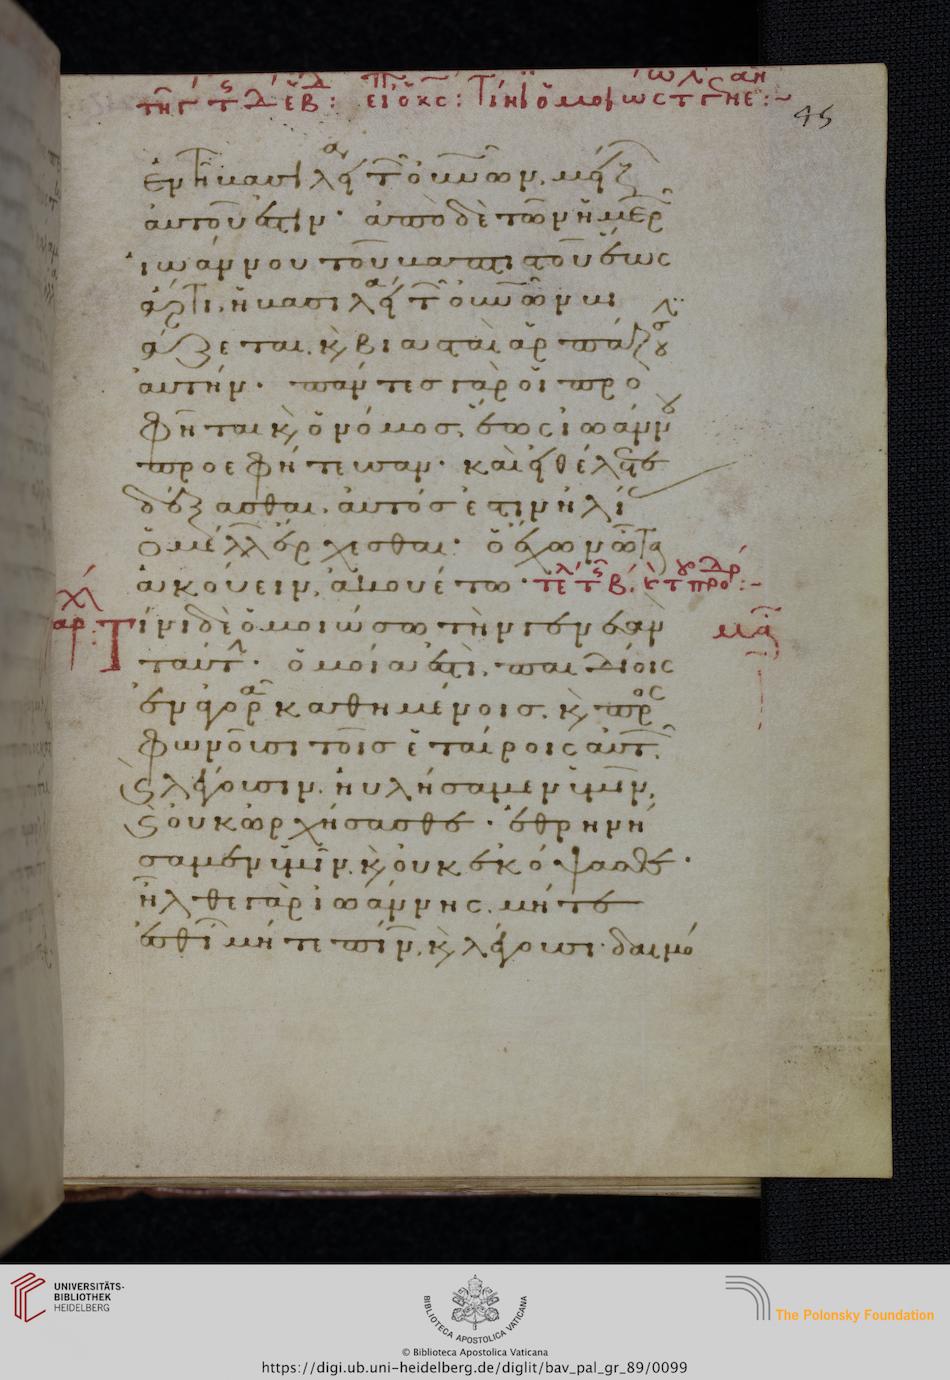 τῇ γ τ δ εβ: εἶ ὁ κς: τίνι ὁμοιώσω τ γ
45
ἐν τῇ βασιλεία τῶν οὐνῶν, μείζων
αὐτοῦ ἐστιν· ἀπὸ δὲ τῶν ἡμερῶν
ἰωάννου τοῦ βαπτιστοῦ ἕως
ἄρτι, ἡ βασιλεία τῶν οὐνῶν βι
άζεται, κ βιασταὶ ἁρπάζουσιν
αὐτήν· πάντες γὰρ οἱ προ
φῆται κ ὁ νόμος, ἕως ἰωάννου
προεφήτευσαν· καὶ εἰ θέλετε
δέξασθαι, αὐτός ἐστιν ἠλίας
ὁ μέλλων ἔρχεσθαι· ὁ ἔχων ὦτα
ἀκούειν, ἀκουέτω· τέλος τ β.
ἀρχ: Τίνι δὲ ὁμοιώσω τὴν γενεὰν
ταύτην· ὁμοία ἐστὶ, παιδίοις
ἐν ἀγορᾶ καθημένοις, κ προς
φωνοῦσι τοῖς ἑταίροις αὐτῶν,
κ λέγουσιν, ηὐλήσαμεν ὑμῖν,
κ οὐκ ὠρχήσασθε· ἐθρηνή
σαμεν ὑμῖν, κ οὐκ ἐκόψασθε·
ἦλθε γὰρ ἰωάννης, μήτε
ἐσθίων μήτε πίνων, κ λέγουσι· δαιμό
UNIVERSITÄTS-
BIBLIOTHEK
HEIDELBERG
BIBLIOTECA APOSTOLICA VATICANA
The Polonsky Foundation
© Biblioteca Apostolica Vaticana
https://digi.ub.uni-heidelberg.de/diglit/bav_pal_gr_89/0099